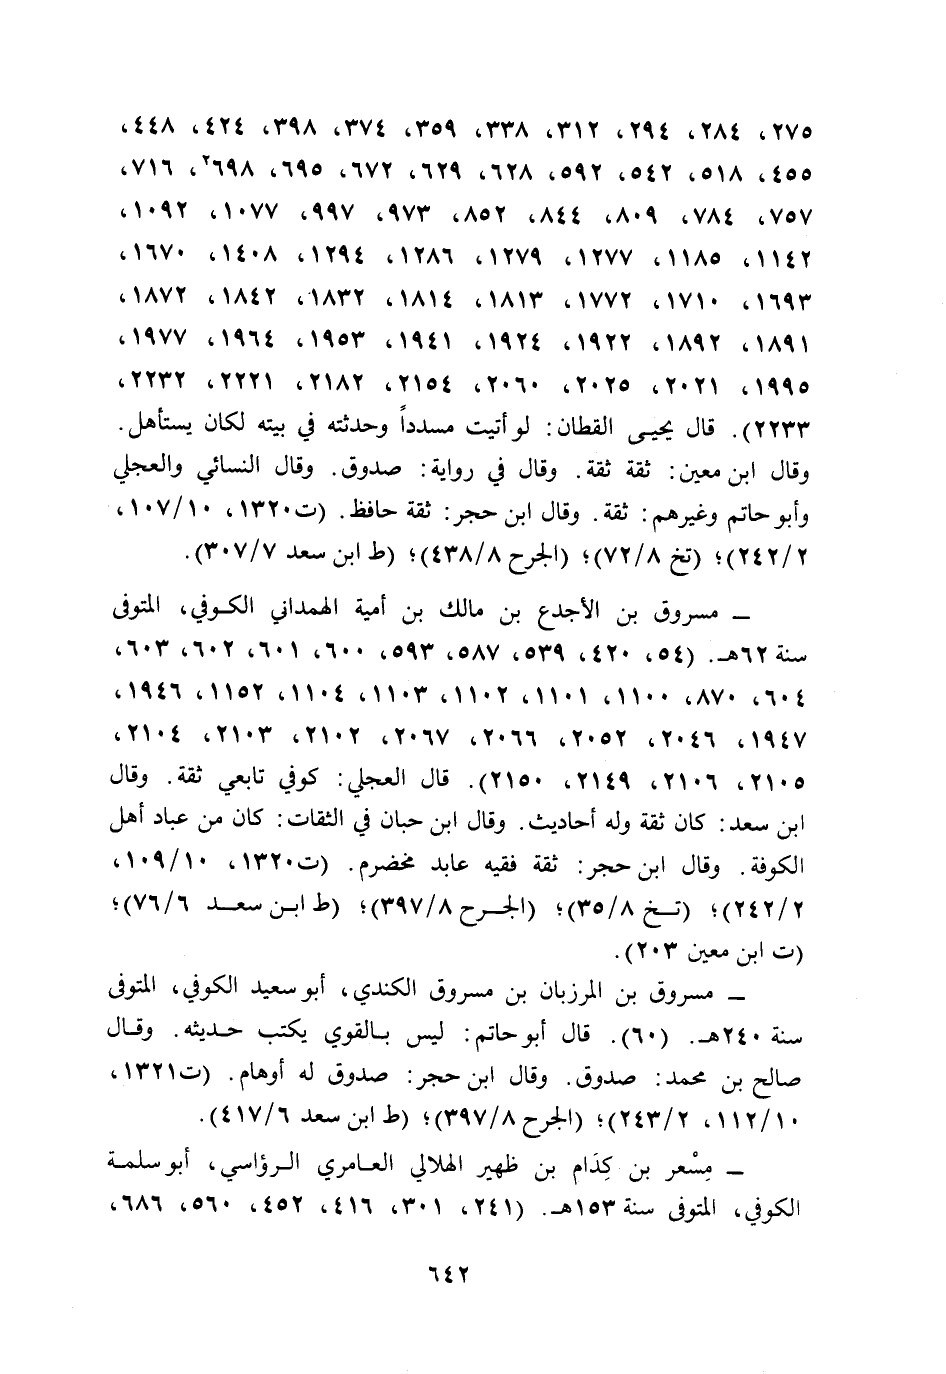 ٢٧٥، ٢٨٤، ٢٩٤، ٣١٢، ٣٣٨، ٣٥٩، ٣٧٤، ٣٩٨، ٤٢٤، ٤٤٨،
٤٥٥، ٥١٨، ٥٤٢، ٥٩٢، ٦٢٨، ٦٢٩، ٦٧٢، ٦٩٥، ٦٩٨٢، ٧١٦،
٧٥٧، ٧٨٤، ٨٠٩، ٨٤٤، ٨٥٢، ٩٧٣، ٩٩٧، ١٠٧٧، ١٠٩٢،
١١٤٢، ١١٨٥، ١٢٧٧، ١٢٧٩، ١٢٨٦، ١٢٩٤، ١٤٠٨، ١٦٧٠،
١٦٩٣، ١٧١٠، ١٧٧٢، ١٨١٣، ١٨١٤، ١٨٣٢، ١٨٤٢، ١٨٧٢،
١٨٩١، ١٨٩٢، ١٩٢٢، ١٩٢٤، ١٩٤١، ١٩٥٣، ١٩٦٤، ١٩٧٧،
١٩٩٥، ٢٠٢١، ٢٠٢٥، ٢٠٦٠، ٢١٥٤، ٢١٨٢، ٢٢٢١، ٢٢٣٢،
٢٢٣٣). قال يحيى القطان: لو أتيت مسدداً وحدثته في بيته لكان يستأهل.
وقال ابن معين: ثقة ثقة. وقال في رواية: صدوق. وقال النسائي والعجلي
وأبو حاتم وغيرهم: ثقة. وقال ابن حجر: ثقة حافظ. (ت١٣٢٠، ١٠٧/١٠،
٢٤٢/٢)؛ (تخ ٧٢/٨)؛ (الجرح ٤٣٨/٨)؛ (ط ابن سعد ٣٠٧/٧).
ــ مسروق بن الأجدع بن مالك بن أمية الهمداني الكوفي، المتوفى
سنة ٦٢هـ. (٥٤، ٤٢٠، ٥٣٩، ٥٨٧، ٥٩٣، ٦٠٠، ٦٠١، ٦٠٢، ٦٠٣،
٦٠٤، ٨٧٠، ١١٠٠، ١١٠١، ١١٠٢، ١١٠٣، ١١٠٤، ١١٥٢، ١٩٤٦،
١٩٤٧، ٢٠٤٦، ٢٠٥٢، ٢٠٦٦، ٢٠٦٧، ٢١٠٢، ٢١٠٣، ٢١٠٤،
٢١٠٥، ٢١٠٦، ٢١٤٩، ٢١٥٠). قال العجلي: كوفي تابعي ثقة. وقال
ابن سعد: كان ثقة وله أحاديث. وقال ابن حبان في الثقات: كان من عباد أهل
الكوفة. وقال ابن حجر: ثقة فقيه عابد مخضرم. (ت١٣٢٠، ١٠٩/١٠،
٢٤٢/٢)؛ (تـخ ٣٥/٨)؛ (الجـرح ٣٩٧/٨)؛ (ط ابـن سعـد ٧٦/٦)؛
(ت ابن معين ٢٠٣).
ــ مسروق بن المرزبان بن مسروق الكندي، أبو سعيد الكوفي، المتوفى
سنة ٢٤٠هـ. (٦٠). قال أبو حاتم: ليس بالقوي يكتب حديثه. وقال
صالح بن محمد: صدوق. وقال ابن حجر: صدوق له أوهام. (ت١٣٢١،
١١٢/١٠، ٢٤٣/٢)؛ (الجرح ٣٩٧/٨)؛ (ط ابن سعد ٤١٧/٦).
ــ مِسْعر بن كِدَام بن ظهير الهلالي العامري الرؤاسي، أبو سلمة
الكوفي، المتوفى سنة ١٥٣هـ. (٢٤١، ٣٠١، ٤١٦، ٤٥٢، ٥٦٠، ٦٨٦،
٦٤٢